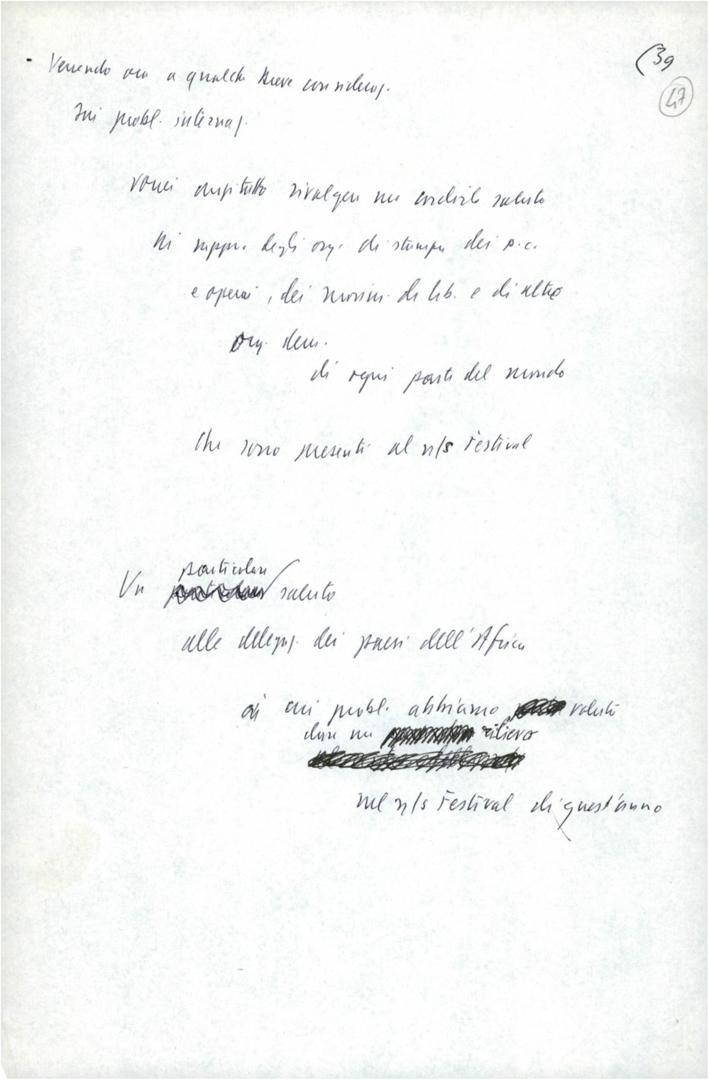 (39
47
- Venendo ora a qualche breve consideraz.
sui probl. internaz.
vorrei anzitutto rivolgere un cordiale saluto
ai rappr. degli org. di stampa dei p.c.
e operai, dei movim. di lib. e di altre
org. dem.
di ogni parte del mondo
che sono presenti al n/s Festival
particolare
Un saluto
alle delegaz. dei paesi dell'Africa
ai cui probl. abbiamo voluto
dare un rilievo
nel n/s Festival di quest'anno